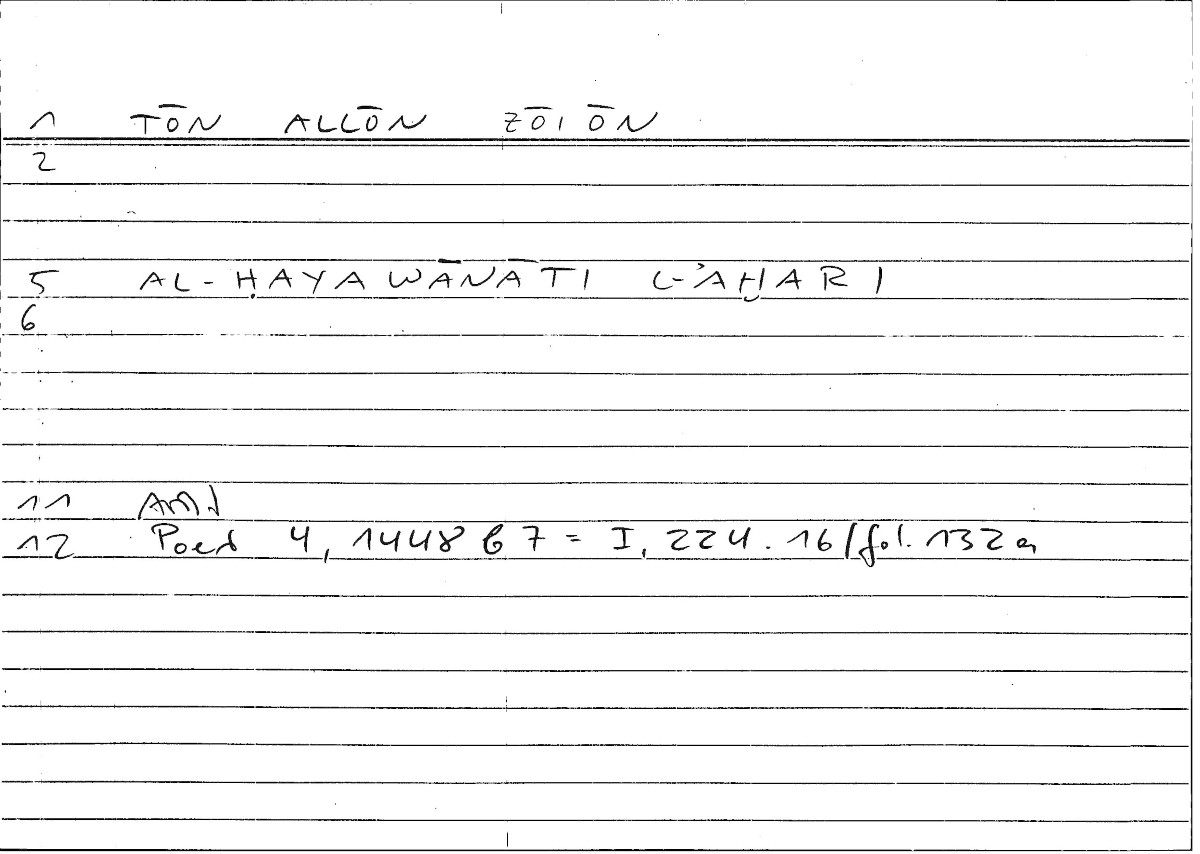 1 TŌN ALLŌN ZŌIŌN
2
5 AL-ḤAYAWĀNĀTI L-ʾAḪARI
6
11
12 Poet 4, 1448 b 7 = I, 224.16/fol. 132a